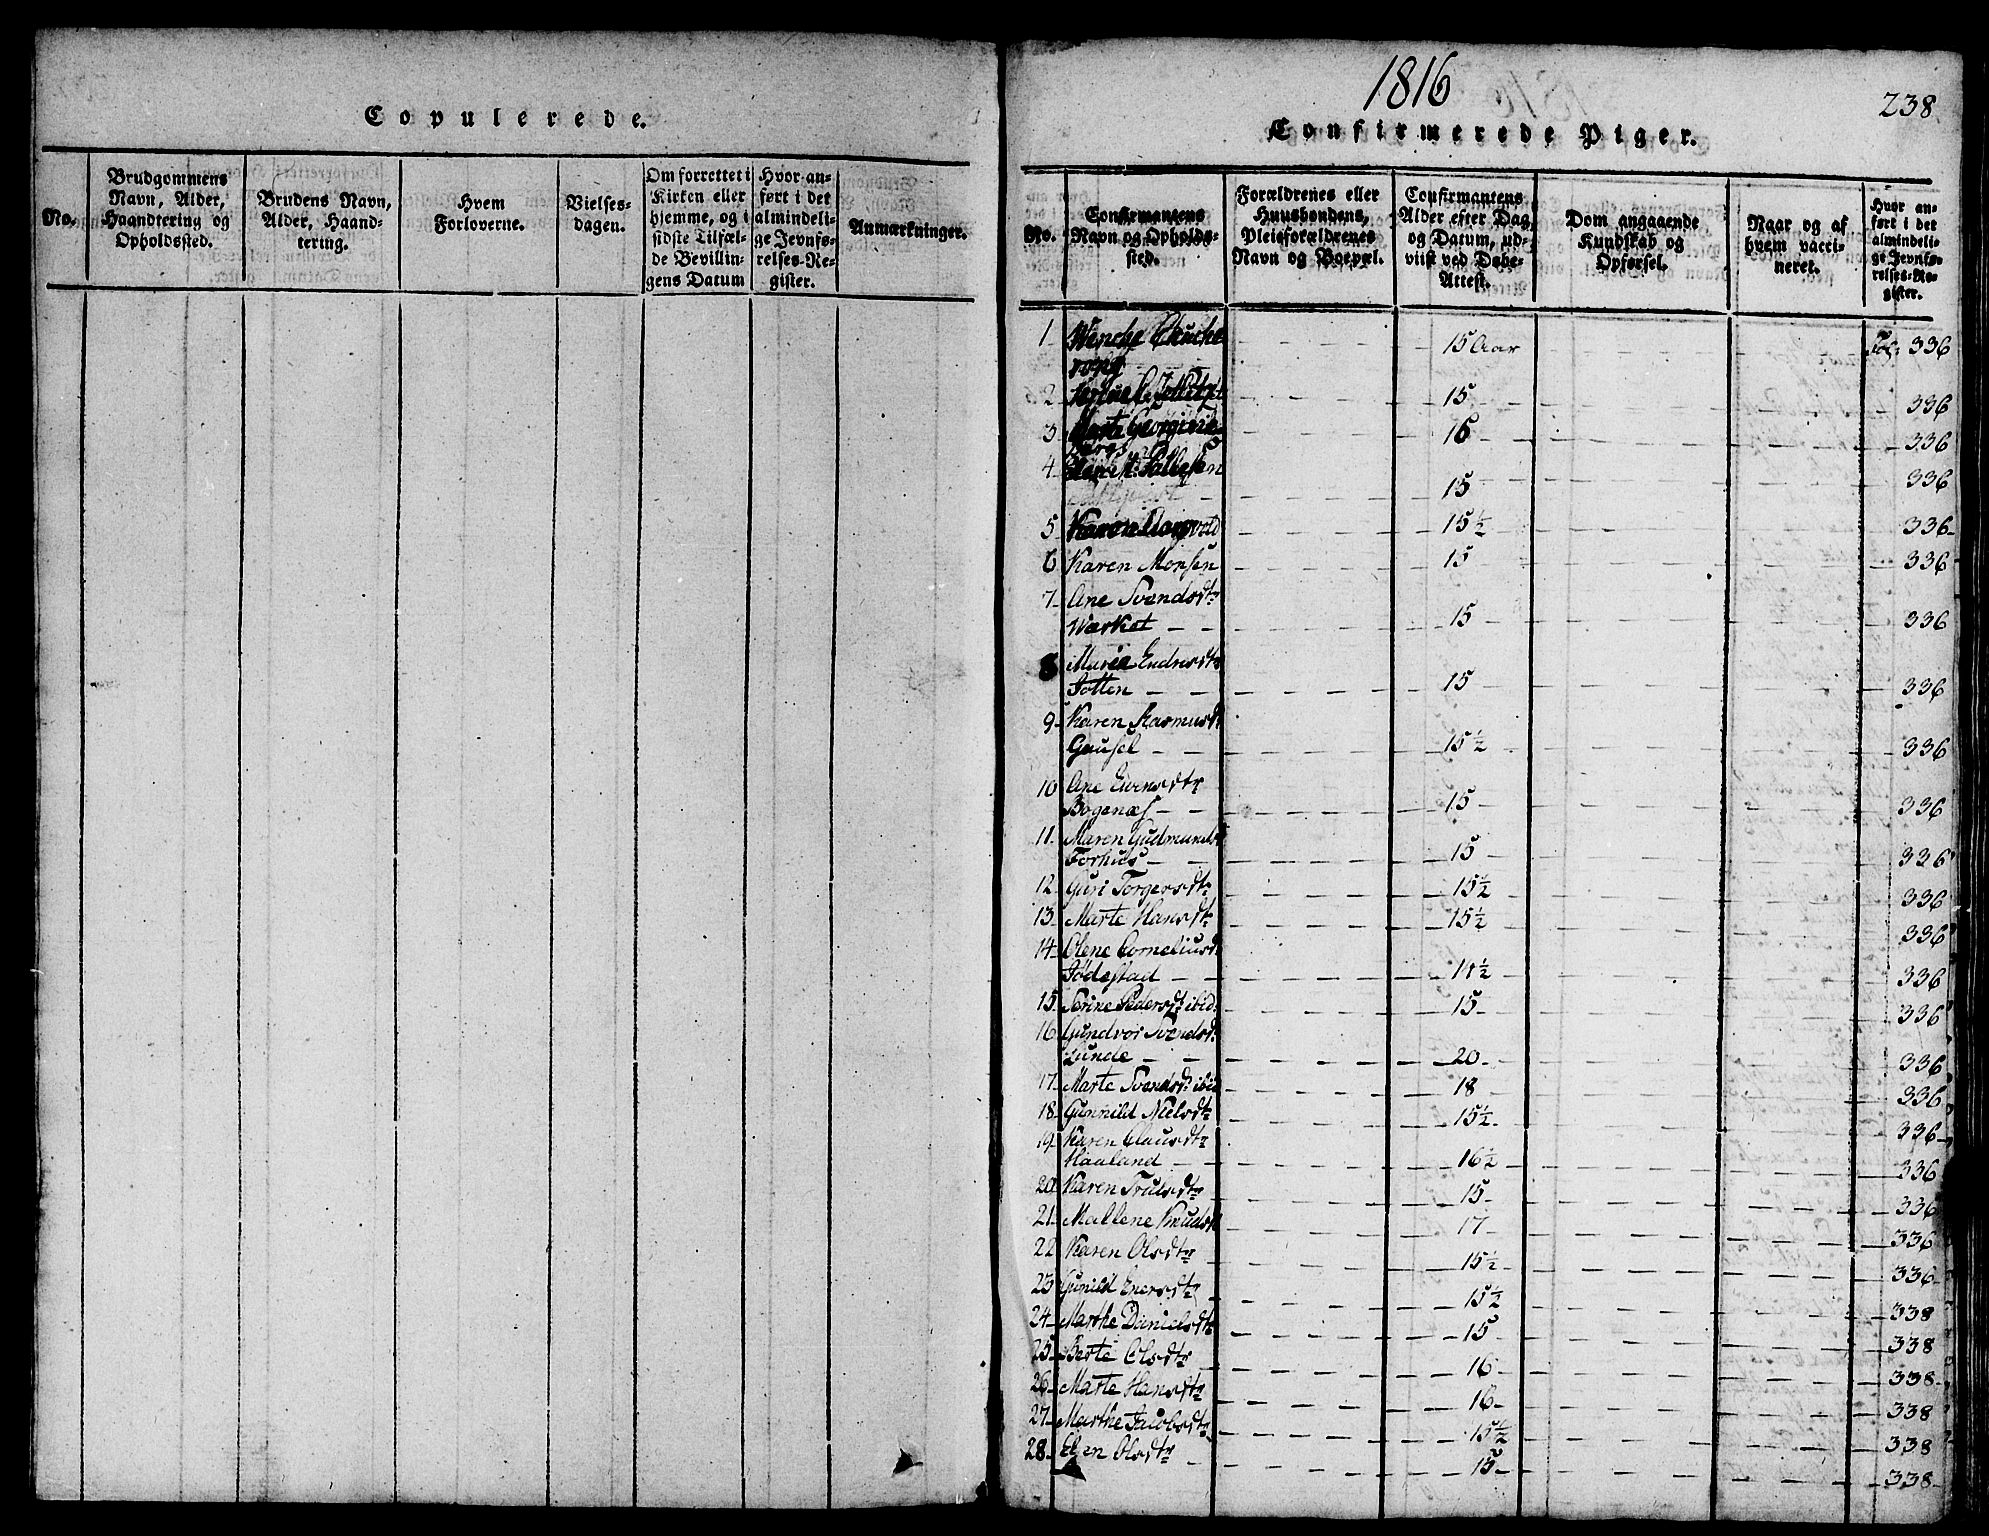 Copulerede.
No.
Brudgommens Navn, Alder, Haandtering og Opholdssted.
Brudens Navn, Alder, Haandtering.
Hvem Forloverne.
Vielsesdagen.
Om forrettet i Kirken eller hjemme, og i sidste Tilfælde Bevillingens Datum
Hvor anført i det almindelige Jevnførelses-Register.
Anmærkninger.
1816
238
Confirmerede Piger.
No.
Confirmantens Navn og Opholdssted.
Forældrenes eller Huusbondens, Pleieforældrenes Navn og Boepæl.
Confirmantens Alder efter Dag og Datum, udviist ved Døbe-Attest.
Dom angaaende Kundskab og Opførsel.
Naar og af hvem vaccineret.
Hvor anført i det almindelige Jevnførelses-Register.
1 Wenche 15 Aar Fol: 336
2 15 336
3 16 336
4 15 336
5 Karen 15½ 336
6 Karen Monsen 15 336
7 Ane Svendsdtr
15 336
8 Marie Endresdtr
Jotten 15 336
9 Karen Rasmusdt
Gausel 15½ 336
10 Ane Eivensdtr
Bogenæs 15 336
11. Maren Gudmunds
Forhus 15 336
12 Guri Torgersdtr 15½ 336
13 Marte Hansdtr 15½ 336
14 Olene Corneliusd:
Jödestad 14½ 336
15 Serine Pedersdt ibid: 15 336
16 Gundvor Svendsd:
Lunde 20 336
17 Marte Svendsdt ibid 18 336
18 Gunnild Nielsdtr 15½ 336
19 Karen Clausdtr
Haaland 16½ 336
20 Karen Trulsdtr 15 336
21 Mallene Knudsd 17 336
22 Karen Olsdtr 15½ 336
23 Gunild Enersdtr 15½ 338
24 Marthe Danielsdtr 15 338
25 Berte Olsdtr 16 338
26 Marte Hansdtr 16 338
27 Marthe Jacobsdtr 15½ 338
28 Elen Olsdtr 15 338